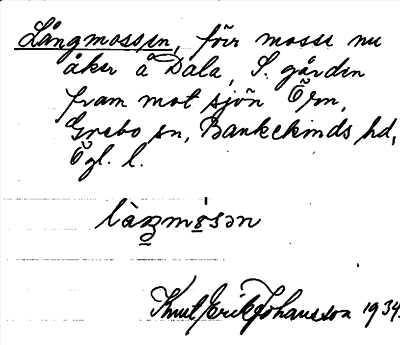 Långmossen, förr mosse nu
åker å Dala, S. gården
fram mot sjön Ören,
Grebo sn, Bankekinds hd,
Ögl. l.
Knut Erik Johansson 1934.